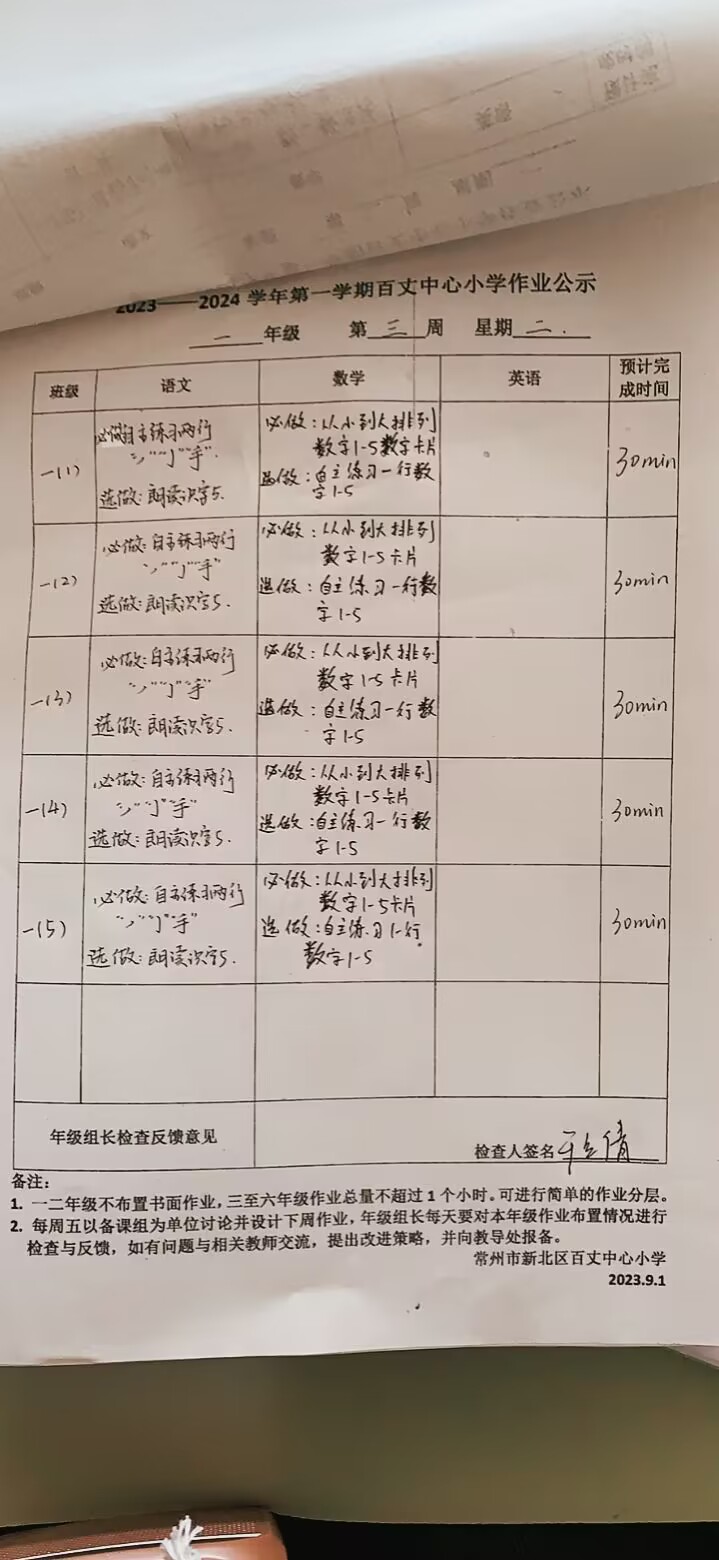 2023——2024 学年第一学期百丈中心小学作业公示
一 年级 第 三 周 星期 二.
班级 语文 数学 英语 预计完成时间
一(1)
必做:自主练习两行
"手".
选做:朗读识字5.
必做:从小到大排列
数字1-5数字卡片
选做:自主练习一行数
字1-5
30min
一(2)
必做:自主练习两行
"手"
选做:朗读识字5.
必做:从小到大排列
数字1-5卡片
选做:自主练习一行数
字1-5
30min
一(3)
必做:自主练习两行
"手"
选做:朗读识字5.
必做:从小到大排列
数字1-5卡片
选做:自主练习一行数
字1-5
30min
一(4)
必做:自主练习两行
"手"
选做:朗读识字5.
必做:从小到大排列
数字1-5卡片
选做:自主练习一行数
字1-5
30min
一(5)
必做:自主练习两行
"手"
选做:朗读识字5.
必做:从小到大排列
数字1-5卡片
选做:自主练习1行
数字1-5
30min
年级组长检查反馈意见
检查人签名
备注:
1. 一二年级不布置书面作业,三至六年级作业总量不超过1个小时。可进行简单的作业分层。
2. 每周五以备课组为单位讨论并设计下周作业,年级组长每天要对本年级作业布置情况进行
检查与反馈,如有问题与相关教师交流,提出改进策略,并向教导处报备。
常州市新北区百丈中心小学
2023.9.1